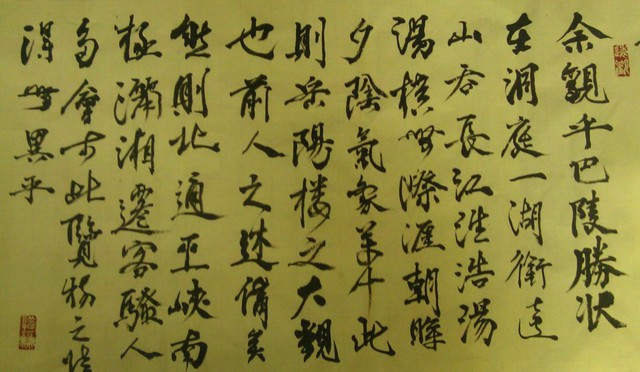 余觀乎巴陵勝状
在洞庭一湖銜遠
山吞長江浩浩湯
湯橫無際涯朝暉
夕陰氣象萬千此
則岳陽楼之大觀
也前人之述備矣
然則北通巫峽南
極瀟湘遷客騷人
多會於此覽物之情
得無異乎